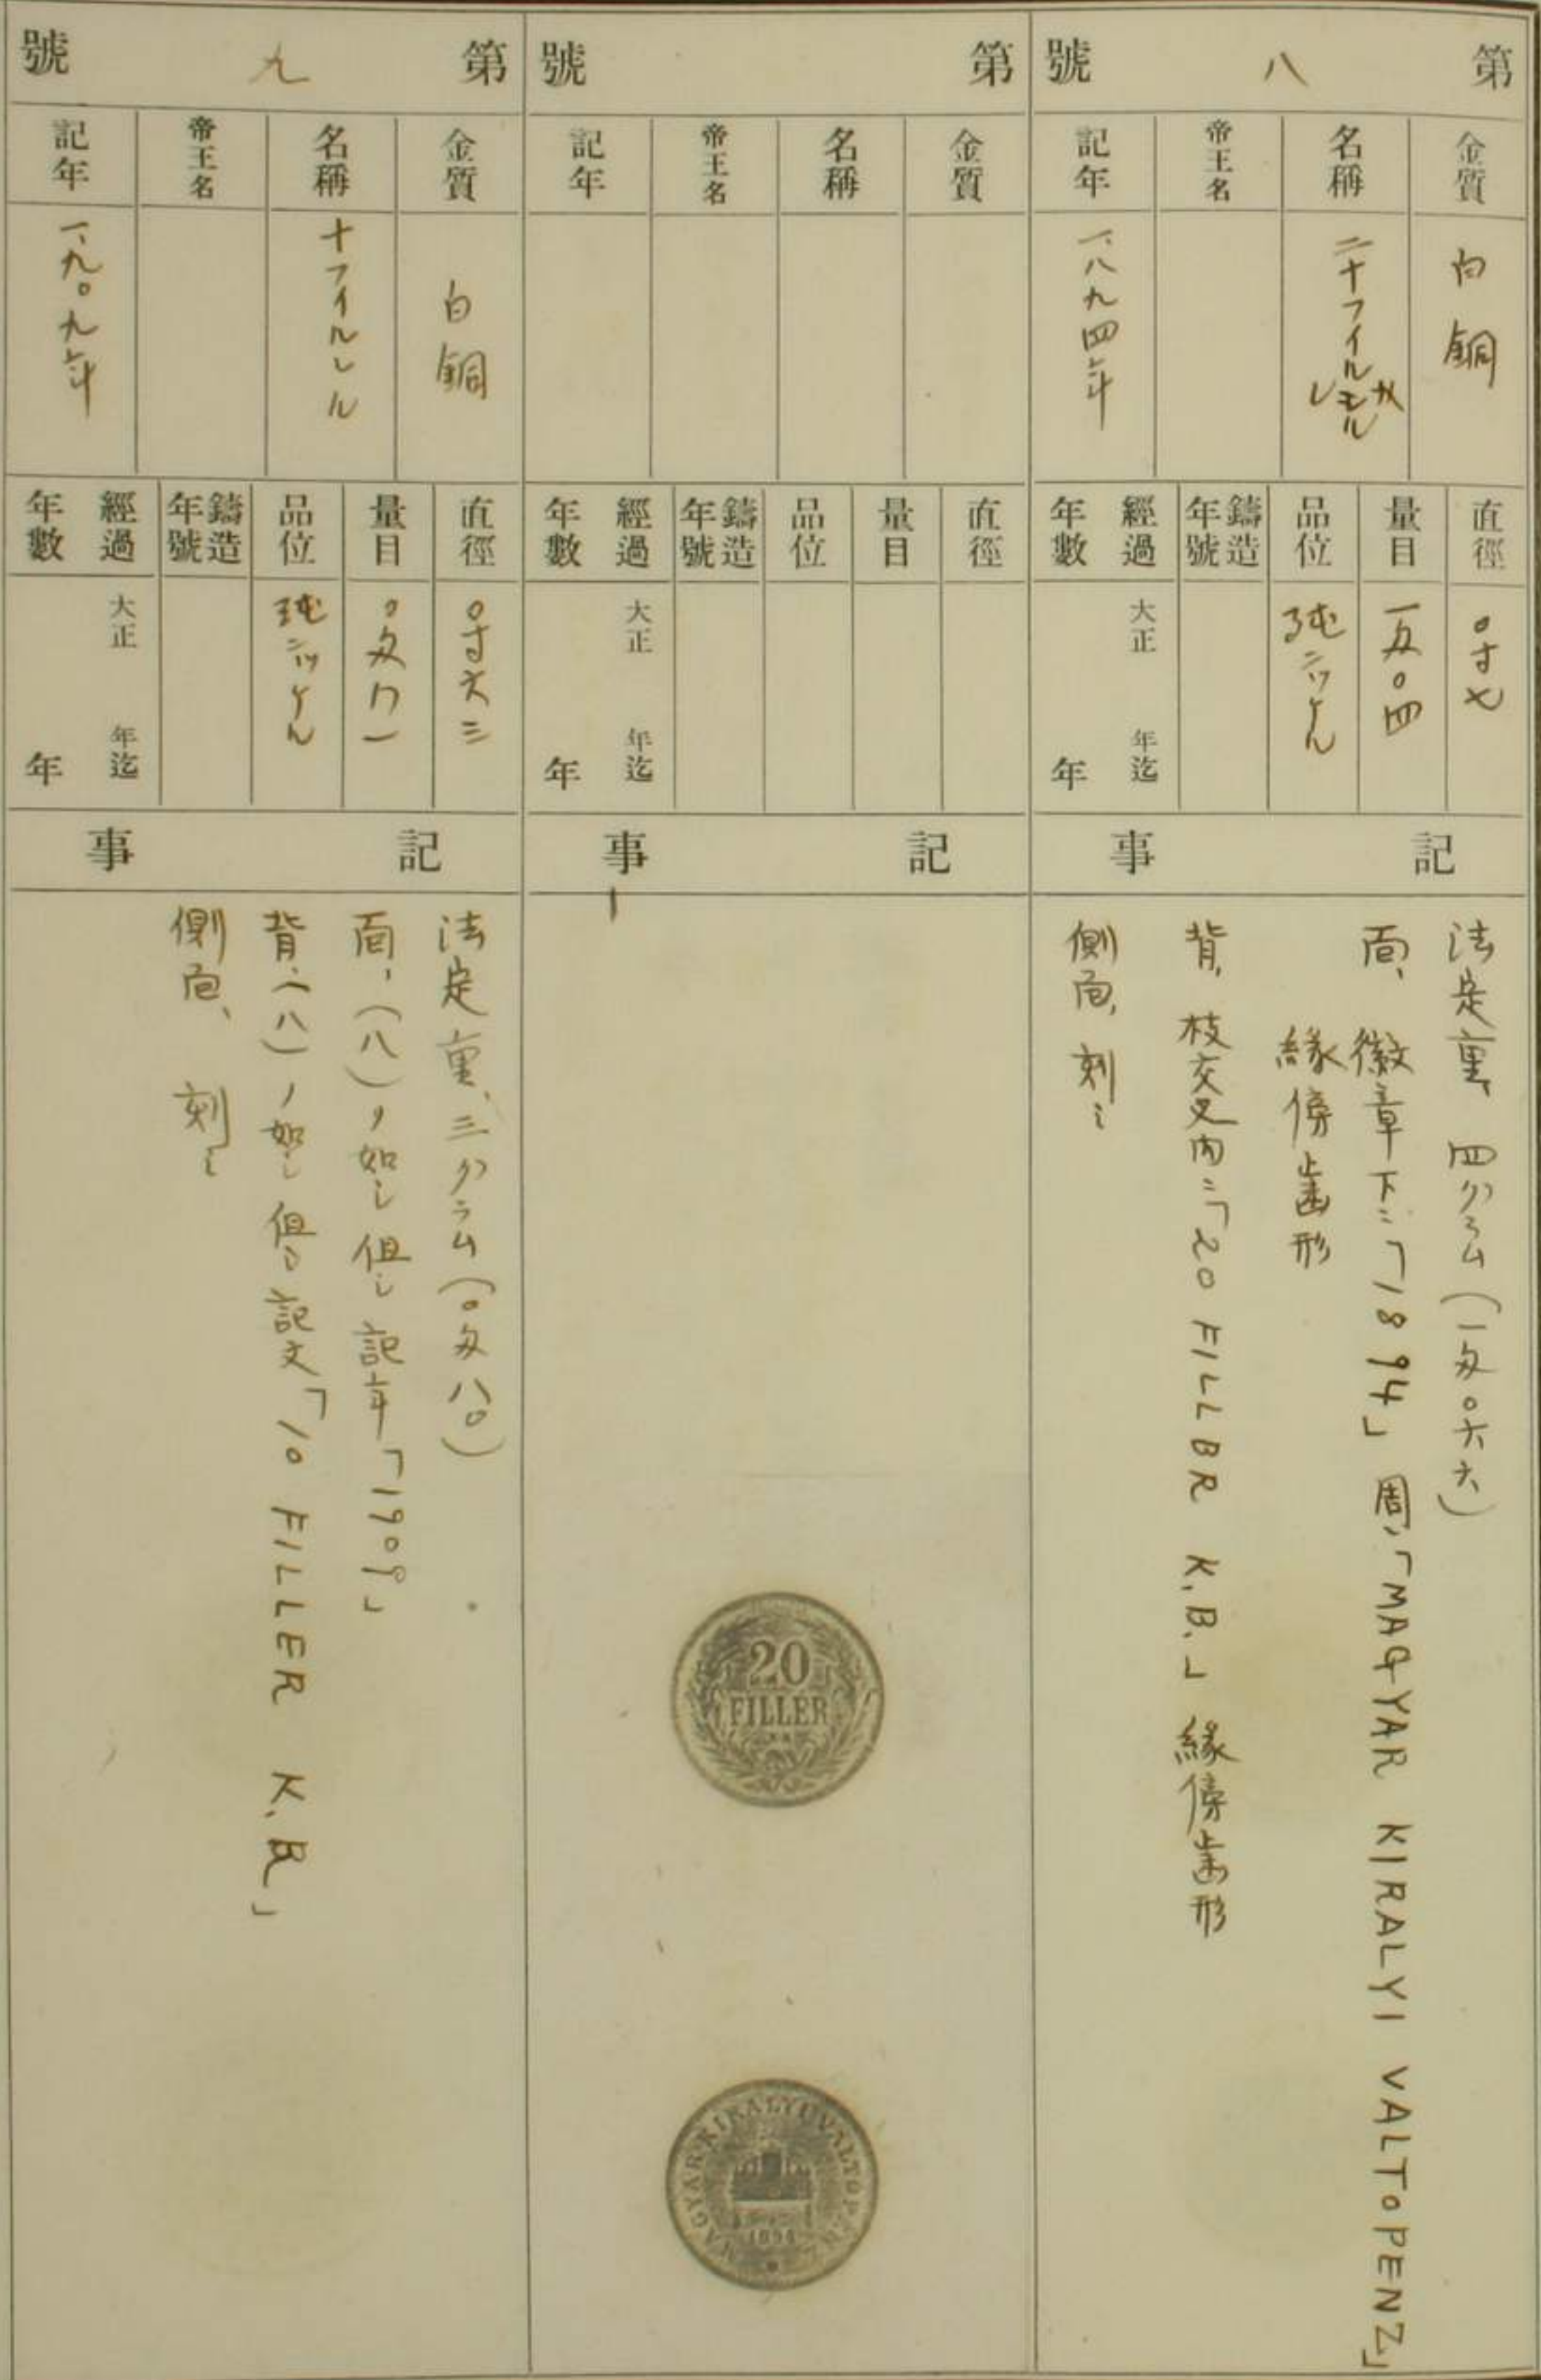 第八號
金質
白銅
名稱
二十フイルレル
帝王名
記年
一、八九四年
直徑
〇寸七
量目
一匁〇四
品位
純ニッケル
鑄造年號
經過年數
大正 年迄
年
記事
法定重、四グラム(一匁〇六六)
面、徽章下ニ「1894」周ニ「MAGYAR KIRALYI VALTOPENZ」
緣傍齒形
背、枝交叉内ニ「20 FILLBR K.B.」緣傍齒形
側面、刻ミ
第 號
金質
名稱
帝王名
記年
直徑
量目
品位
鑄造年號
經過年數
大正 年迄
年
記事
20
FILLER
MAGYAR KIRALYI VALTOPENZ
1894
第九號
金質
白銅
名稱
十フイルレル
帝王名
記年
一、九〇九年
直徑
〇寸六三
量目
品位
純ニッケル
鑄造年號
經過年數
大正 年迄
年
記事
法定重、三グラム(〇匁八〇)
面、(八)ノ如シ但シ記年「1909」
背、(八)ノ如シ但シ記文「10 FILLER K.B」
側面、刻ミ